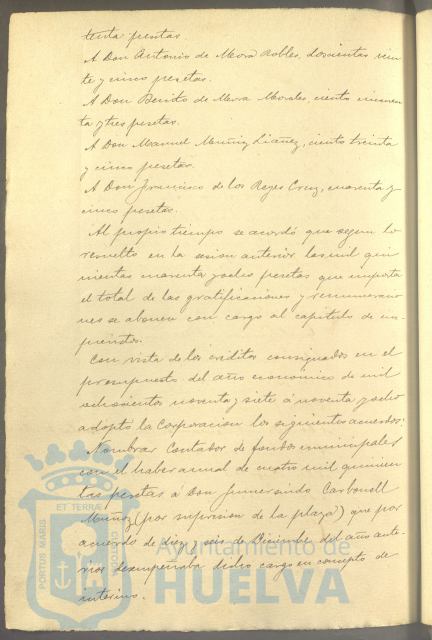 tenta pesetas.
A Don Antonio de Mora Robles, doscientas vein
te y cinco pesetas.
A Don Benito de Mora Morales, ciento cincuen
ta y tres pesetas.
A Don Manuel Muñiz Liañez, ciento treinta
y cinco pesetas.
A Don Francisco de los Reyes Cruz, cuarenta y
cinco pesetas.
Al propio tiempo se acordó que segun lo
resuelto en la sesion anterior las mil qui
nientas cuarenta y ocho pesetas que importa
el total de las gratificaciones y remuneracio
nes se abonen con cargo al capitulo de im-
previstos.
Con vista de los créditos consignados en el
presupuesto del año economico de mil
ochocientos noventa y siete á noventa y ocho
adoptó la Corporacion los siguientes acuerdos:
Nombrar Contador de fondos municipales
con el haber anual de cuatro mil quinien
tas pesetas á Don Gumersindo Carbonell
Muñoz (por supresion de la plaza) que por
acuerdo de diez y seis de Diciembre del año ante-
rior desempeñaba dicho cargo en concepto de
interino.
PORTUS MARIS
ET TERRÆ
CUSTODIA
Ayuntamiento de
HUELVA